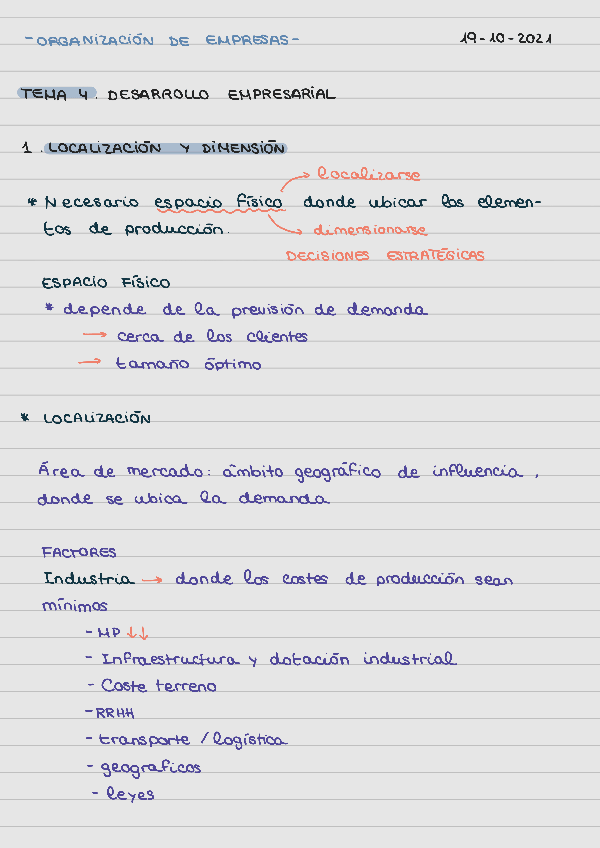 -ORGANIZACIÓN DE EMPRESAS-
19-10-2021
TEMA 4. DESARROLLO EMPRESARIAL
1. LOCALIZACIÓN Y DIMENSIÓN
localizarse
* Necesario espacio físico donde ubicar los elemen-
tos de producción.
dimensionarse
DECISIONES ESTRATÉGICAS
ESPACIO FÍSICO
* depende de la previsión de demanda
→ cerca de los clientes
→ tamaño óptimo
* LOCALIZACIÓN
Área de mercado: ámbito geográfico de influencia,
donde se ubica la demanda
FACTORES
Industria → donde los costes de producción sean
mínimos
- MP ↓↓
- Infraestructura y dotación industrial
- Coste terreno
- RRHH
- transporte / logística
- geograficos
- leyes